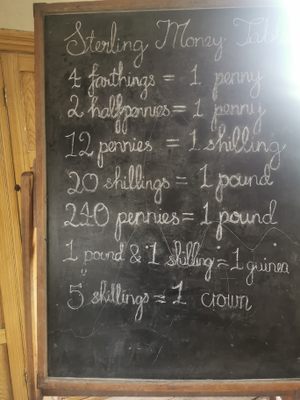 Sterling Money Tab
4 farthings = 1 penny
2 halfpennies = 1 penny
12 pennies = 1 shilling
20 shillings = 1 pound
240 pennies = 1 pound
1 pound & 1 shilling = 1 guinea
5 shillings = 1 crown